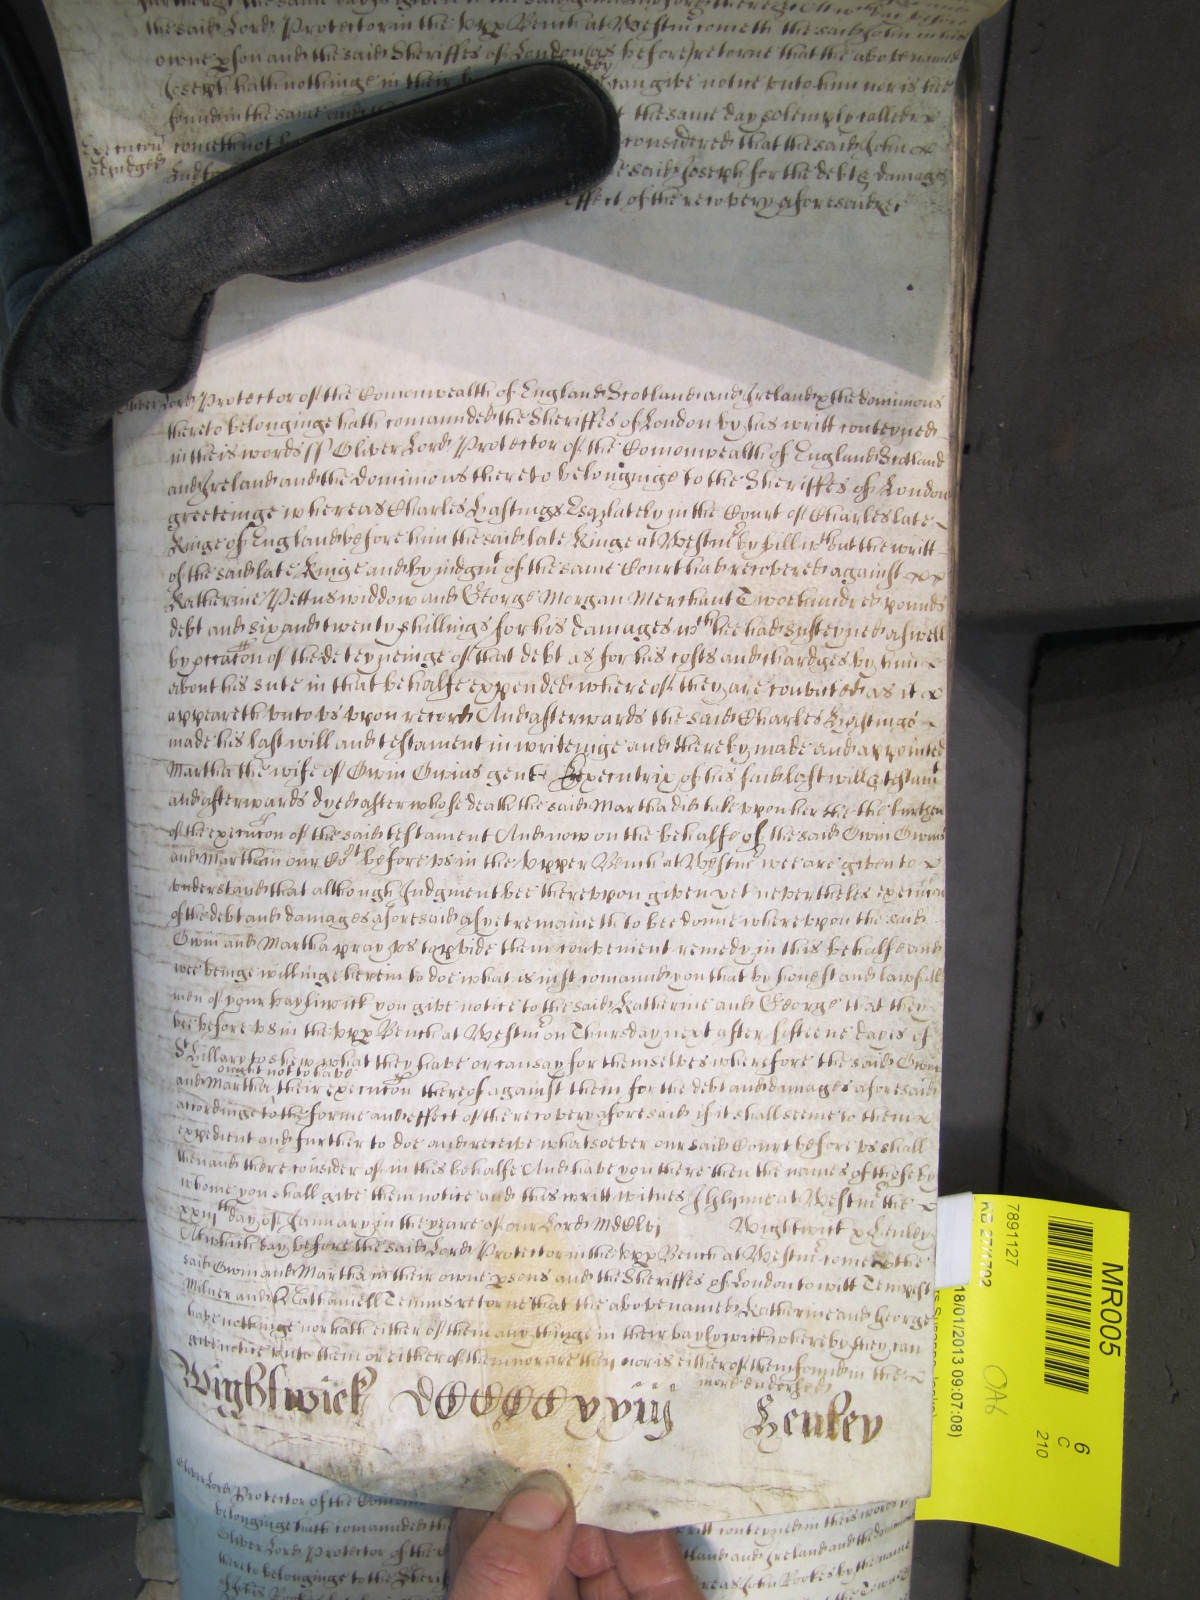 the said Lord Protector in the upp Bench at Westmr cometh the said John in his
owne pson and the said Sheriffes of London (as before) retorne that the above named
Joseph hath nothinge in their can give notice unto him nor is hee
found in the same and the same day solemply called
Execucon cometh not considered that the said John
adjudged said Joseph for the debt & damages
effect of the recovery aforesaid &c
Oliver Lord Protector of the Comonwealth of England Scotland and Ireland & the dominions
thereto belonginge hath comannded the Sheriffes of London by his writt conteyned
in theis words ss Oliver Lord Protector of the Comonwealth of England Scotland
and Ireland and the dominions thereto belonginge to the Sheriffes of London
greetinge whereas Charles Hastings Esq lately in the Court of Charles late
Kinge of England before him the said late Kinge at Westmr by bill wthout the writt
of the said late Kinge and by judgmt of the same Court had recovered against
Katherine Pettus widdow and George Morgan Merchant Twoe hundred pounds
debt and six and twenty shillings for his damages wch hee had susteyned aswell
by occacon of the deteyneinge of that debt as for his costs and chardges by him
about his sute in that behalfe expended whereof they are convicted as it
appeareth unto us upon record And afterwards the said Charles Hastings
made his last will and testament in writeinge and thereby made and appointed
Martha the wife of Gwin Gwins gent Executrix of his said last will & testamt
and afterwards dyed after whose death the said Martha did take upon her the the burthen
of the execucon of the said testament And now on the behalfe of the said Gwin Gwins
and Martha in our Cort before us in the Upper Bench at Westmr wee are given to
understand that although Judgment bee thereupon given yet neverthelesse execucon
of the debt and damages aforesaid as yet remaineth to bee donne whereupon the said
Gwin and Martha pray us to pvide them convenient remedy in this behalfe and
wee beinge willinge herein to doe what is just comannd you that by honest and lawfull
men of your bayliwick you give notice to the said Katherine and George that they
bee before us in the upp Bench at Westmr on Thursday next after fifteene daies of
St Hillary to shew what they have or can say for themselves wherefore the said Gwin
ought not to have
and Martha their execucon thereof against them for the debt and damages aforesaid
accordinge to the forme and effect of the recovery aforesaid if it shall seeme to them
expedient and further to doe and receive whatsoever our said Court before us shall
then and there consider of in this behalfe And have you there then the names of those by
whome you shall give them notice and this writt witnes J Glynne at Westmr the
day of January in the yeare of our Lord MDClvj Wightwick & Henley
At which day before the said Lord Protector in the upp Bench at Westmr come the
said Gwin and Martha in their owne psons and the Sheriffes of London to witt Tempest
Milner and Nathaniell Temms retorne that the above named Katherine and George
have nothinge nor hath either of them any thinge in their baylywick whereby they can
give notice unto them or either of them nor are they nor is either of them found in the
more endorsed
Wightwick Henley
Oliver Lord Protector of the Comon
belonginge hath comannded the writt conteyned in theis words
Oliver Lord Protector of the and Ireland and the dominions
thereto belonginge to the Sherif whereas John Rookes by the name
MR005
7891127
KB 27/1792
18/01/2013 09:07:08)
OA6
6
C
210